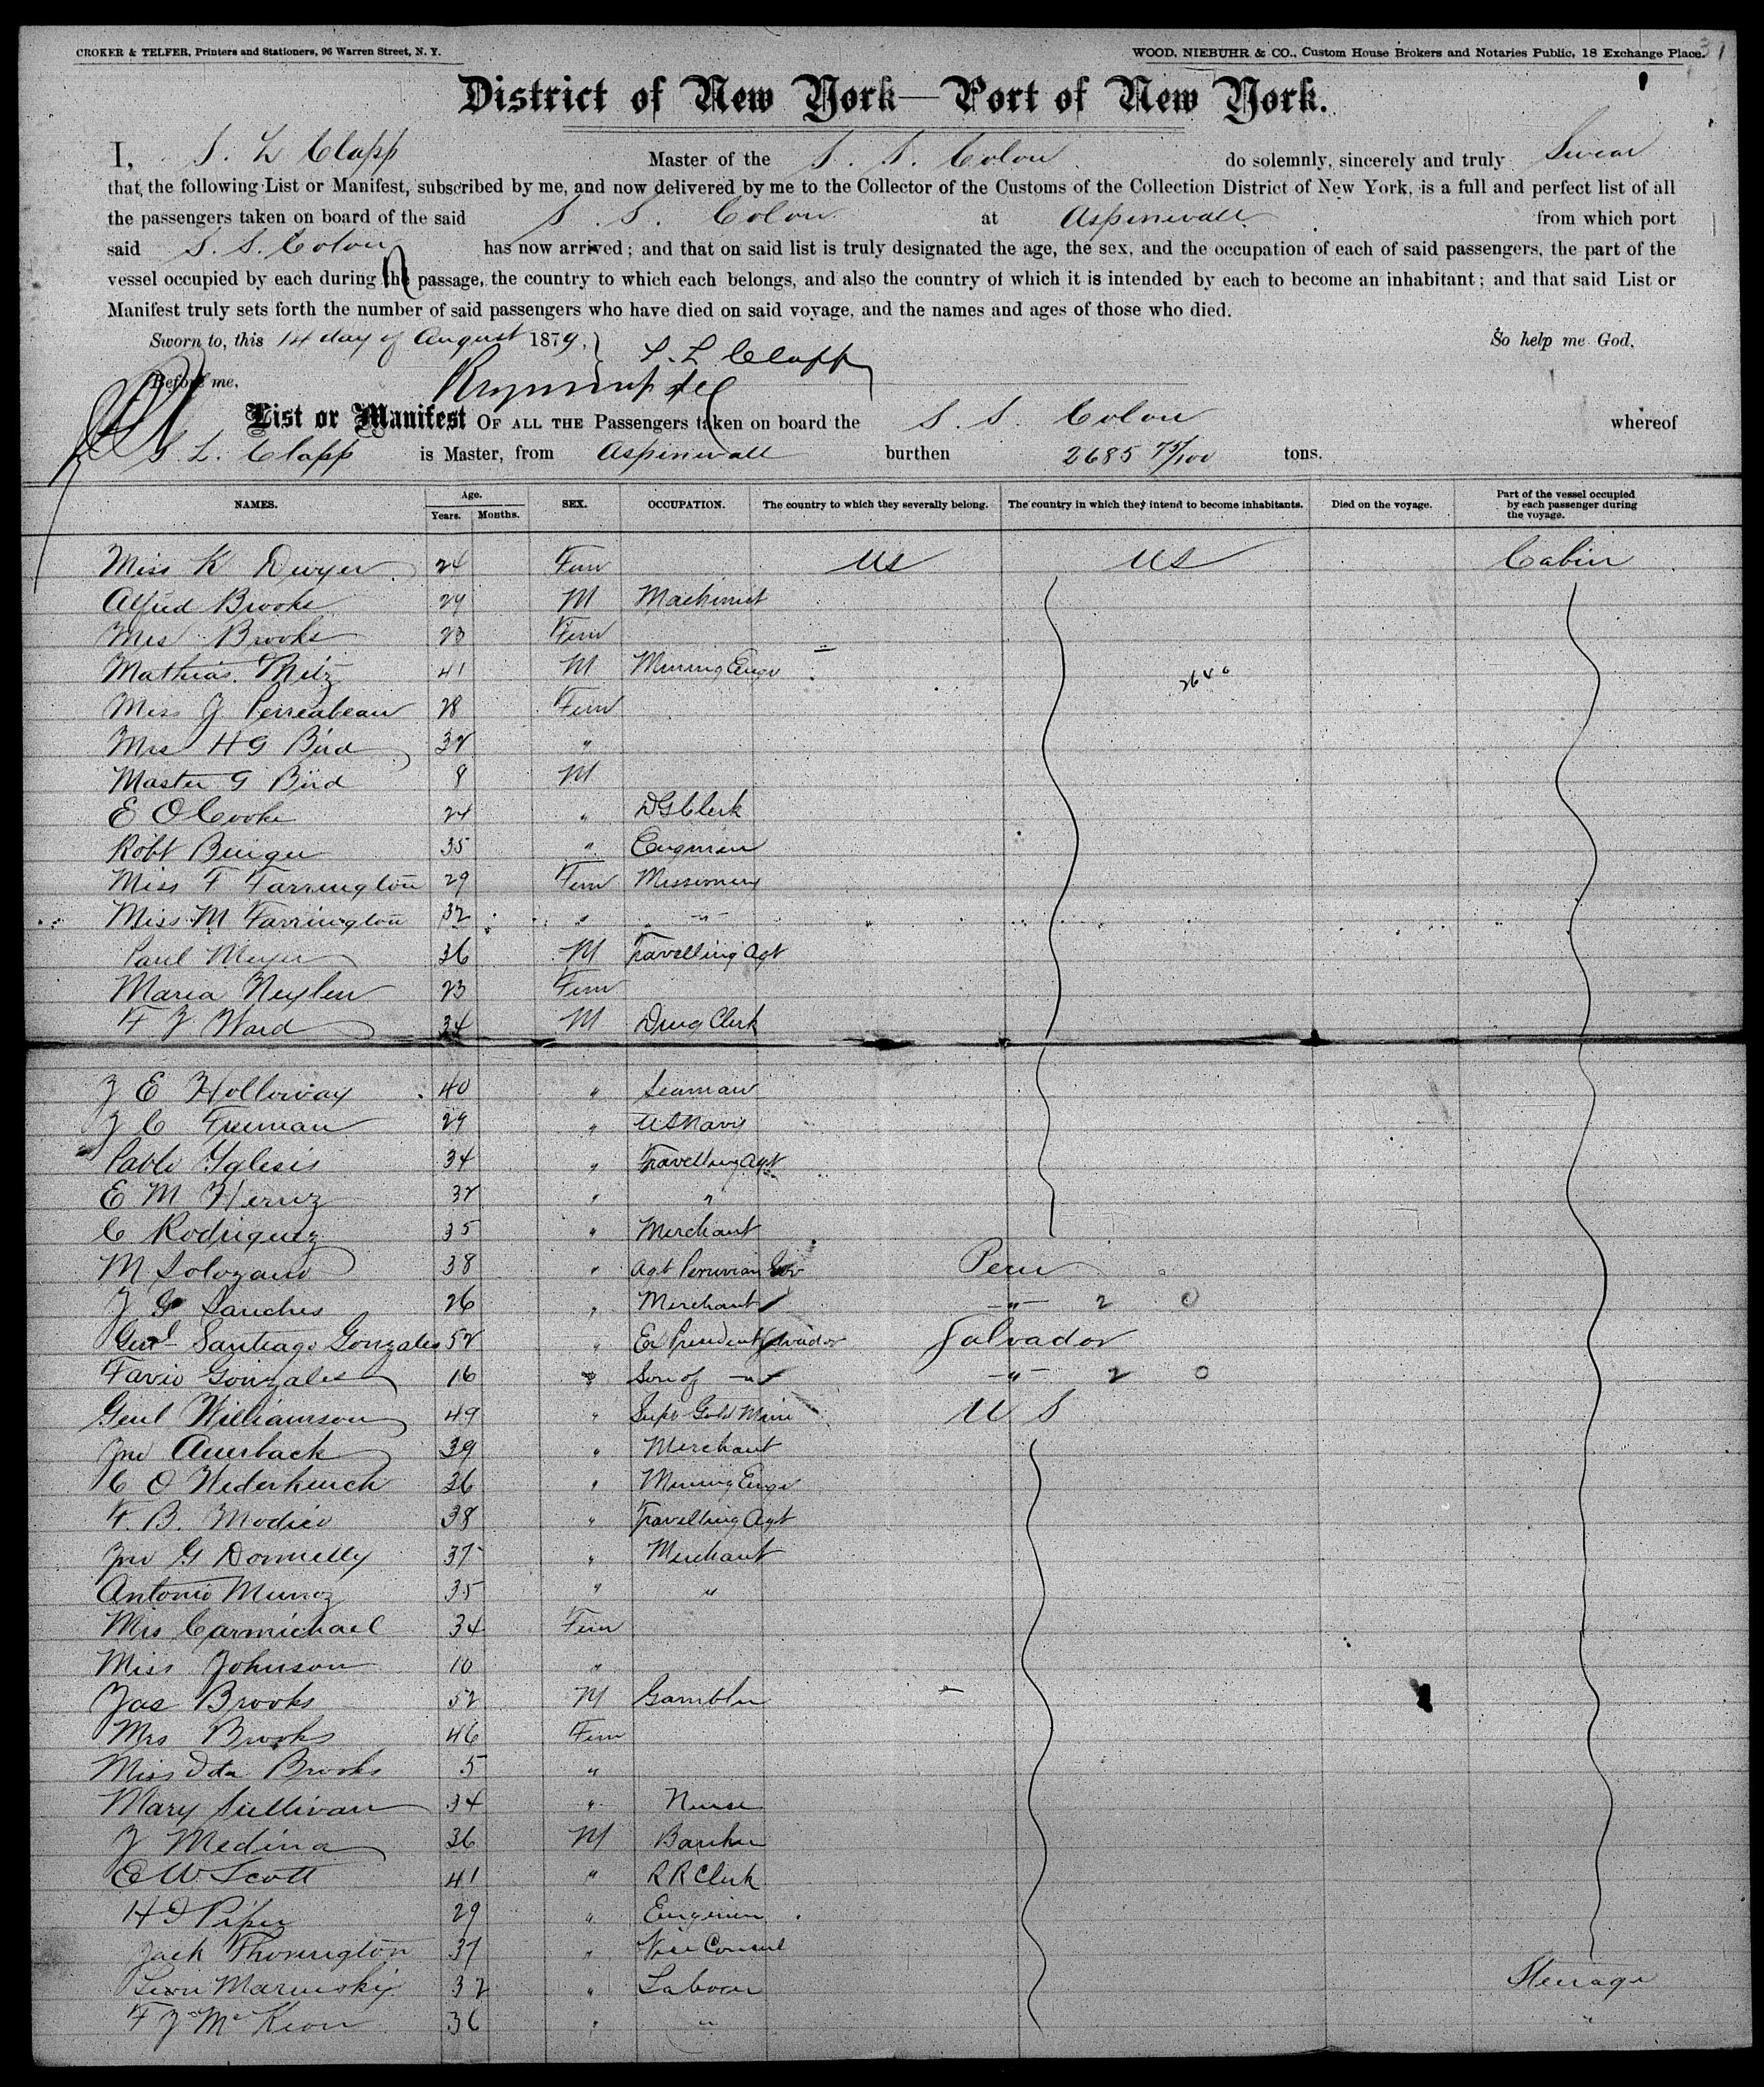 CROKER & TELFER, Printers and Stationers, 96 Warren Street, N. Y.
WOOD, NIEBUHR & CO., Custom House Brokers and Notaries Public, 18 Exchange Place.
District of New York—Port of New York.
I, S. L Clapp Master of the S. S. Colon do solemnly, sincerely and truly Swear
that the following List or Manifest, subscribed by me, and now delivered by me to the Collector of the Customs of the Collection District of New York, is a full and perfect list of all
the passengers taken on board of the said S. S. Colon at Aspinwall from which port
said S. S. Colon has now arrived; and that on said list is truly designated the age, the sex, and the occupation of each of said passengers, the part of the
vessel occupied by each during the passage, the country to which each belongs, and also the country of which it is intended by each to become an inhabitant; and that said List or
Manifest truly sets forth the number of said passengers who have died on said voyage, and the names and ages of those who died.
Sworn to, this 14 day of August 1879. S. L Clapp So help me God.
Before me,
List or Manifest OF ALL THE Passengers taken on board the S. S. Colon whereof
S. L. Clapp is Master, from Aspinwall burthen 2685 75/100 tons.
NAMES. Age. Years. Months. SEX. OCCUPATION. The country to which they severally belong. The country in which they intend to become inhabitants. Died on the voyage. Part of the vessel occupied by each passenger during the voyage.
Miss K Dwyer 24 Fem US US Cabin
Alfred Brooks 29 M Machinist
Mrs Brooks 23 Fem
Mathias 41 M Mining Engr
Miss J 28 Fem
Mrs H G Bird 32 "
Master G Bird 8 M
E O Cooke 24 " D G Clerk
Robt 35 "
Miss F Farrington 29 Fem Missionary
Miss M Farrington 32 " - " -
Paul Meyer 36 M Travelling Agt
Maria 23 Fem
F J Ward 34 M Drug Clerk
J E Holloway 40 " Seaman
J C Freeman 29 " US Navy
Pablo Yglesis 34 " Travelling Agt
E M 32 " "
C Rodriguez 35 " Merchant
M Solozano 38 " Agt Peruvian Gov Peru
J Sanches 26 " Merchant - " - 2 0
Genl Santiago Gonzales 52 " Ex President Salvador Salvador
Favio Gonzales 16 " Son of - " - - " - 2 0
Genl Williamson 49 " Supt Gold Mine U S
Jno Auerback 39 " Merchant
C O 36 " Mining Engr
F. B. Modico 38 " Travelling Agt
Jno G Donnelly 37 " Merchant
Antonio Munoz 35 " "
Mrs Carmichael 34 Fem
Miss Johnson 10 "
Jas Brooks 52 M Gambler
Mrs Brooks 46 Fem
Miss Ida Brooks 5 "
Mary Sullivan 34 " Nurse
J Medina 36 M Banker
E W Scott 41 " R R Clerk
H I Piper 29 "
Jack Thorington 37 " Vice Consul
32 " Laborer Steerage
F J McKeon 36 " " "